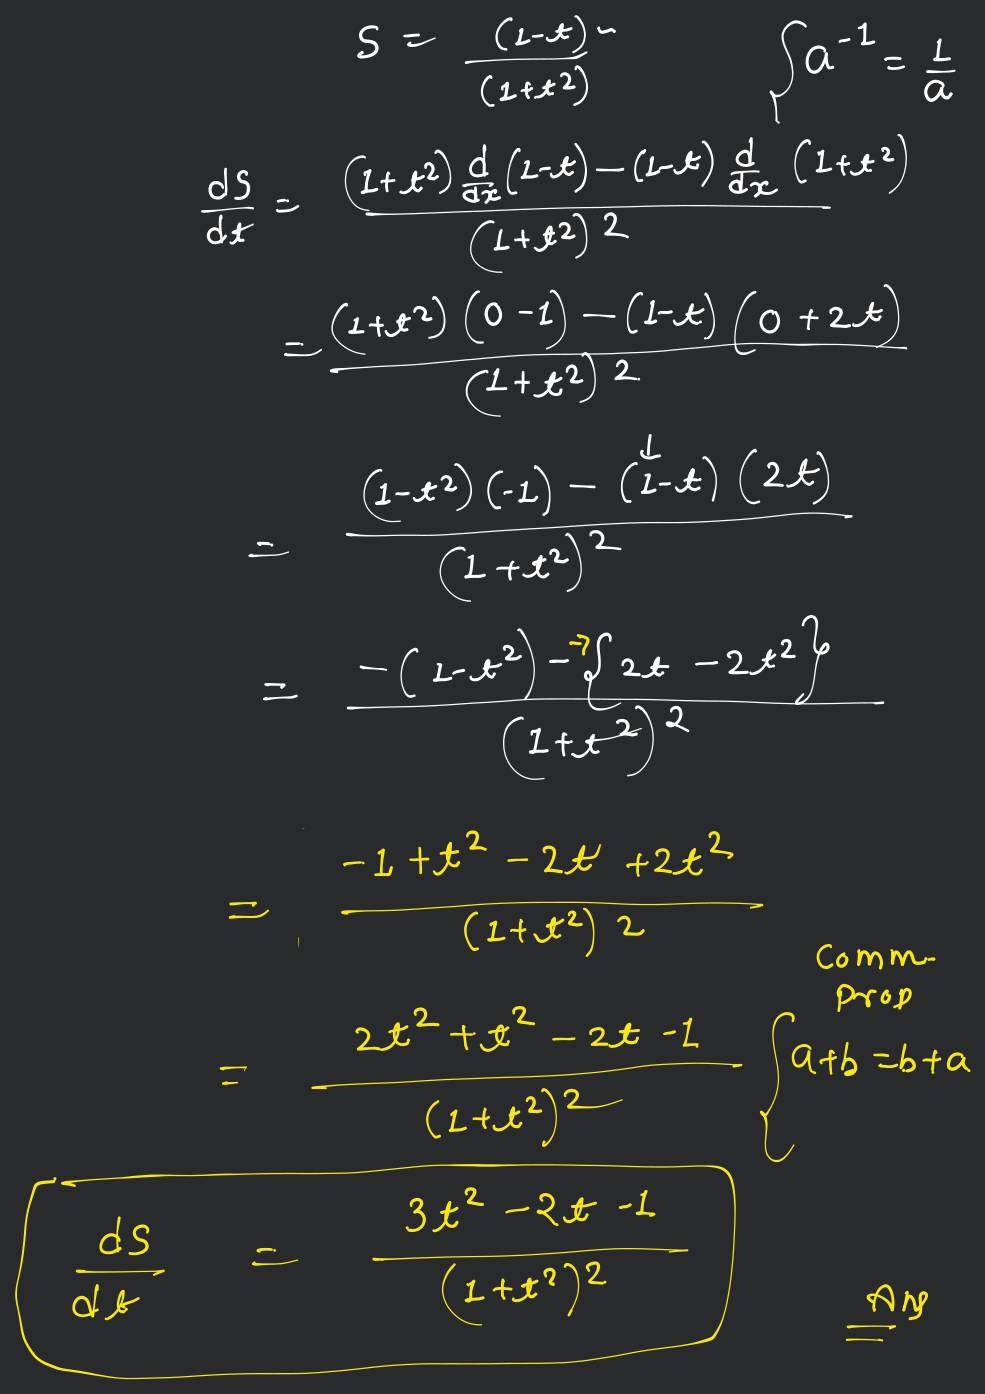 S = (1-t) / (1+t²)
{ a⁻¹ = 1/a
dS/dt = ((1+t²) d/dx (1-t) - (1-t) d/dx (1+t²)) / (1+t²)²
= ((1+t²) (0-1) - (1-t) (0+2t)) / (1+t²)²
= ((1-t²) (-1) - (1-t) (2t)) / (1+t²)²
= (-(1-t²) - {2t - 2t²}) / (1+t²)²
= (-1+t² - 2t + 2t²) / (1+t²)²
= (2t² + t² - 2t - 1) / (1+t²)²
Comm-
Prop
{ a+b = b+a
dS/dt = (3t² - 2t - 1) / (1+t²)²
Ans